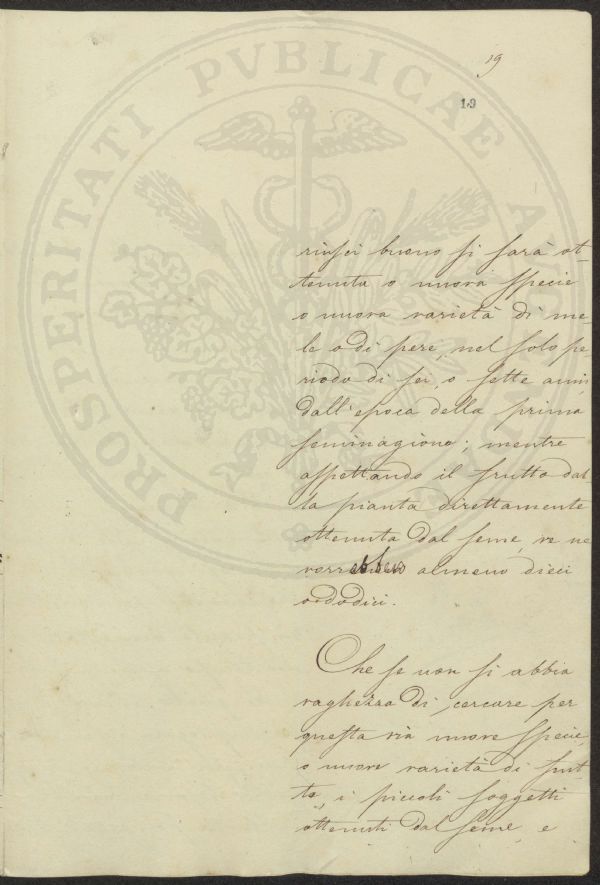 19
19
PROSPERITATI PVBLICAE AVG
riuscì buono si sarà ot-
tenuta o nuova specie
o nuova varietà di me-
le o di pere, nel solo pe-
riodo di sei, o sette anni,
dall'epoca della prima
seminagione; mentre
aspettando il frutto dal-
la pianta direttamente
ottenuta dal seme, ve ne
vorrebbero almeno dieci
o dodici.
Che se non si abbia
vaghezza di cercare per
questa via nuove specie,
o nuove varietà di frut-
ta, i piccoli soggetti
ottenuti dal seme, e